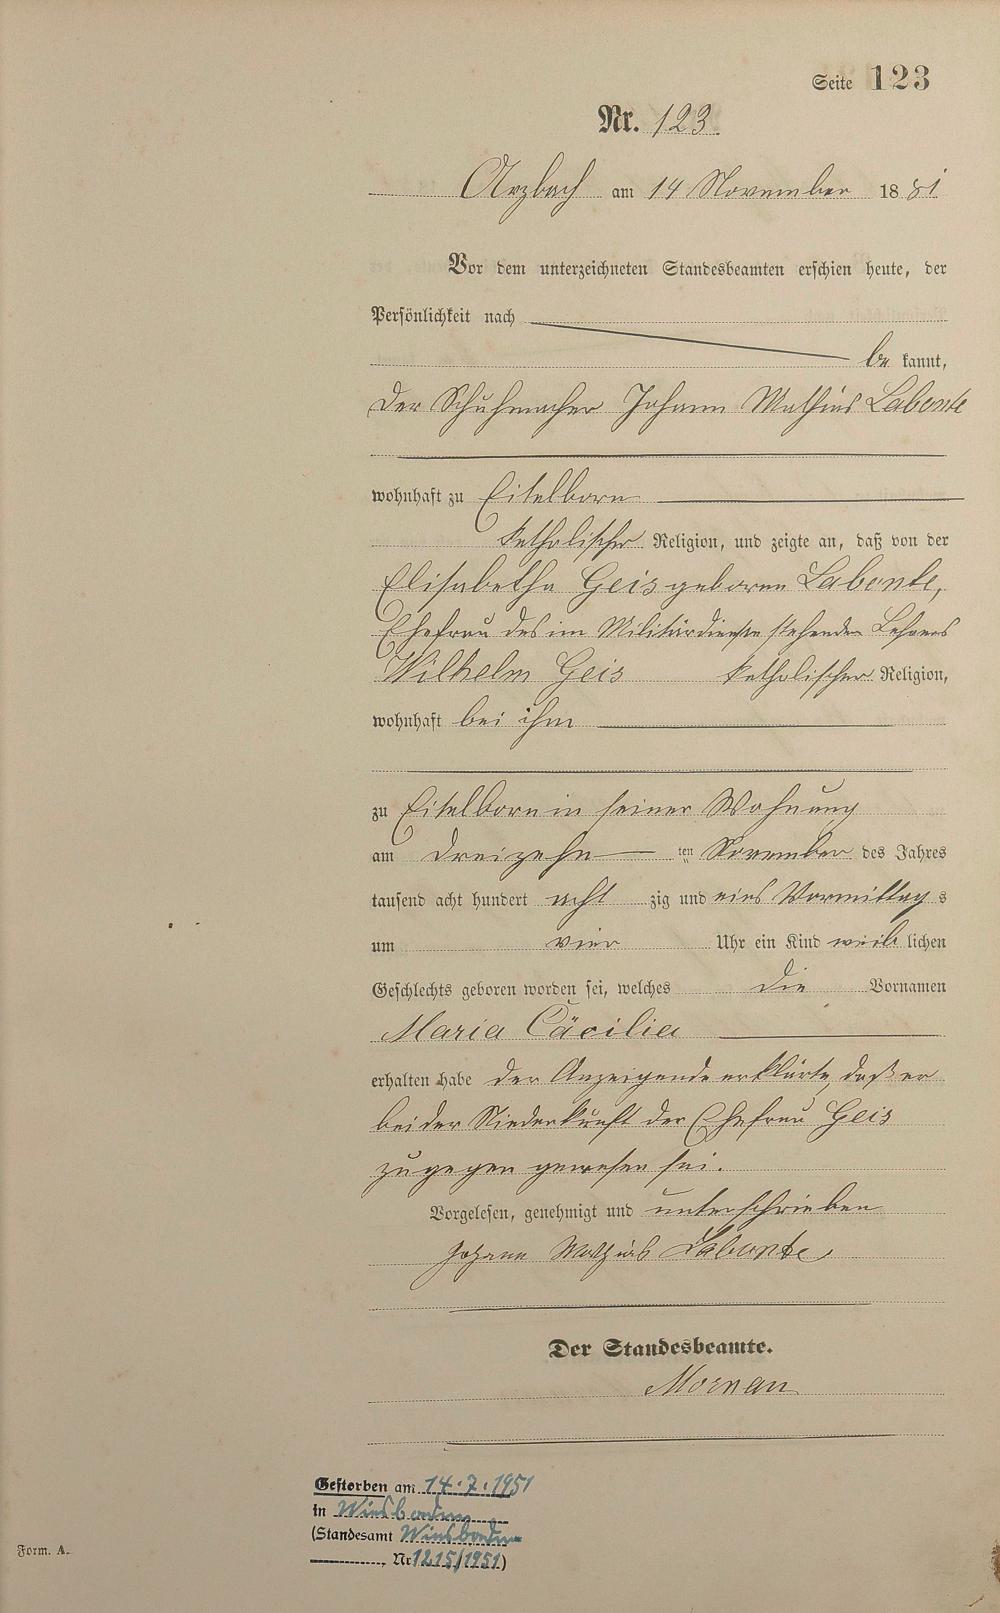 Seite 123
Nr. 123.
Arzbach am 14 November 1881
Vor dem unterzeichneten Standesbeamten erschien heute, der
Persönlichkeit nach
be kannt,
der Schuhmacher Johann Mathias Labonte
wohnhaft zu Eitelborn
katholischer Religion, und zeigte an, daß von der
Elisabetha Geis geborne Labonte,
Ehefrau des im Militärdienste stehenden Lehrers
Wilhelm Geis katholischer Religion,
wohnhaft bei ihm
zu Eitelborn in seiner Wohnung
am dreizehn ten November des Jahres
tausend acht hundert acht zig und eins Vormittag s
um vier Uhr ein Kind weib lichen
Geschlechts geboren worden sei, welches die Vornamen
Maria Cäcilia
erhalten habe der Anzeigende erklärte, daß er
bei der Niederkunft der Ehefrau Geis
zugegen gewesen sei.
Vorgelesen, genehmigt und unterschrieben
Johann Mathias Labonte,
Der Standesbeamte.
Gestorben am 14.7.1951
in Wiesbaden
(Standesamt Wiesbaden
Nr 1215/1951)
Form. A.